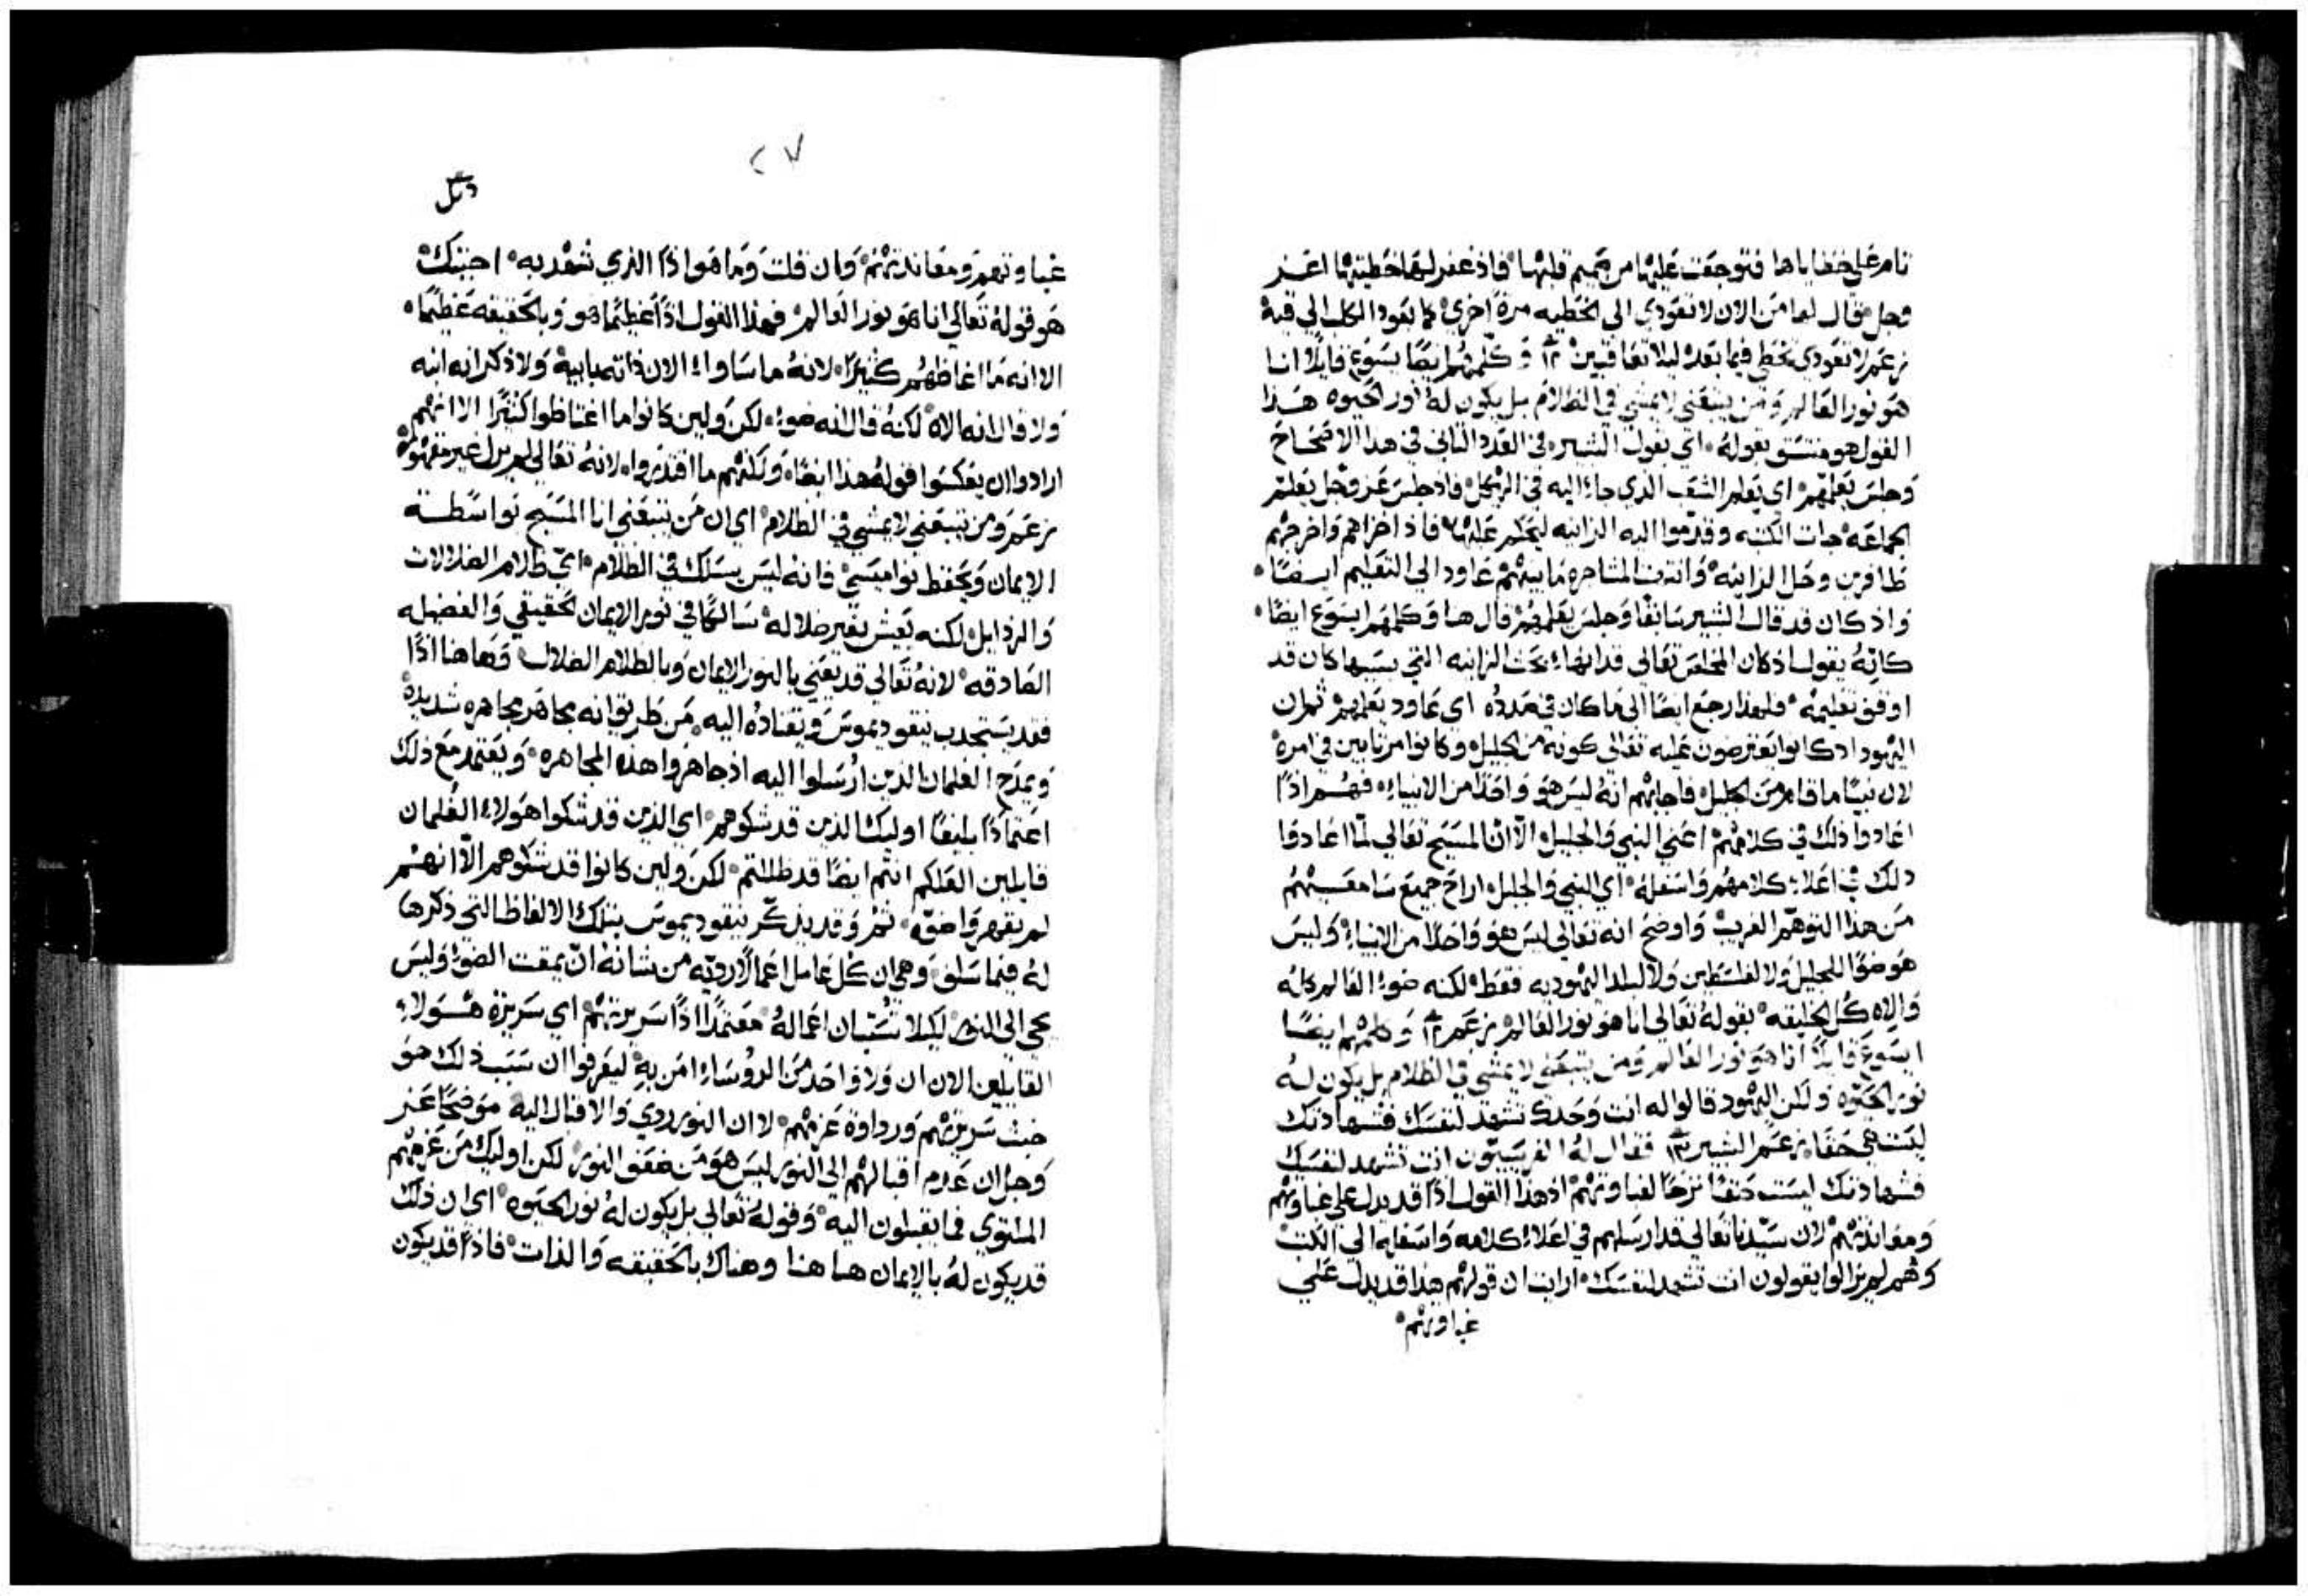 نام على خطاياها فتوجعت عليها من صميم قلبها فاذ غفر لها خطيتها اعز
وجل وقال لها من الان لا تعودي الى الخطيه مرة اخري كما يعود الكلب الي قيه
زعم لا تعودي تخطي فيما بعد ليلا تعاقبين وكلمهم ايضا يسوع قايلا انا
هو نور العالم ومن يتبعني لا يمشي في الظلام بل يكون له نور الحيوه هذا
القول هو متسق بقوله اي بقول البشير في العدد الثاني في هذا الاصحاح
وجلس يعلمهم اي يعلم الشعب الذي جاء اليه في الهيكل فاذ جلس عز وجل يعلم
الجماعه جات الكتبه وقدموا اليه الزانيه ليحكم عليها فاذ اخزاهم واخرجهم
ظافرين وحل الزانيه وانتهت المشاجره ما بينهم عاود الي التعليم ايضا
واذ كان قد قال البشير سابقا وجلس يعلمهم قال هنا وكلمهم يسوع ايضا
كانه يقول اذ كان المخلص تعالى قد انهاء بحث الزانيه التي بسببها كان قد
اوقف تعليمه فلهذا رجع ايضا الى ما كان في صدده اي عاود يعلمهم ثم ان
اليهود اذ كانوا يعترضون عليه تعالى كونه من الجليل وكانوا مرتابين في امره
لان نبيا ما قام من الجليل فاجابهم انه ليس هو واحدا من الانبياء فهم اذا
اعادوا ذلك في كلامهم اعني النبي والجليل الا ان المسيح تعالي لما اعادوا
ذلك في اعلاء كلامهم واسفله اي النبي والجليل اراح جميع سامعيهم
من هذا التوهم الغريب واوضح انه تعالي ليس هو واحدا من الانبياء وليس
هو ضوا للجليل ولا لفلسطين ولا لبلد اليهوديه فقط لكنه ضوء العالم كله
والاه كل الخليقه بقوله تعالي انا هو نور العالم زعم وكلمهم ايضا
ايسوع قايلا انا هو نور العالم ومن يتبعني لا يمشي في الظلام بل يكون له
نور الحيوه ولكن اليهود قالوا له انت وحدك تشهد لنفسك فشهادتك
ليست هي حقا زعم البشير فقال له الفريسيون انت تشهد لنفسك
فشهادتك ليست حقا لغباوتهم اذ هذا القول اذا قد يدل على غباوتهم
ومعاندتهم لان سيدنا تعالي قد ارسلهم في اعلاء كلامه واسفله الي الكتب
وهم لم يزالوا يقولون انت تشهد لنفسك اريت ان قولهم هذا قد يدل علي
غباوتهم
٢٧
غباوتهم ومعاندتهم وان قلت وما هو اذا الذي شهد به اجبتك
هو قوله تعالي انا هو نور العالم فهذا القول اذا عظيما هو وبالحقيقه عظيما
الا انه ما اغاظهم كثيرا لانه ما ساواء الان ذاته بابيه ولا ذكر انه ابنه
ولا قال انه الاه لكنه قال انه ضوء لكن ولين كانوا ما اغتاظوا كثيرا الا انهم
ارادوا ان يعكسوا قوله هذا ايضا ولكنهم ما اقتدروا لانه تعالي لم يزل غير مقهور
زعم ومن يتبعني لا يمشي في الظلام اي ان من يتبعني انا المسيح بواسطة
الايمان ويحفظ نواميسي فانه ليس يسلك في الظلام اي ظلام الضلالات
والرذايل لكنه يعيش بغير ضلاله سالكا في نور الايمان الحقيقي والفضيله
الصادقه لانه تعالي قد يعني بالنور الايمان وبالظلام الضلال وهاهنا اذا
فقد يستجذب نيقوديموس ويقتاده اليه من طريق انه يجاهر مجاهره شديدة
ويمدح الغلمان الذين ارسلوا اليه اذ جاهروا هذه المجاهره ويعتمد مع ذلك
اعتمادا بليغا اوليك الذين قد شكوهم اي الذين قد شكوا هولاء الغلمان
قايلين العلكم انتم ايضا قد ظللتم لكن ولين كانوا قد شكوهم الا انهم
لم يقهروا ضوه ثم وقد يذكر نيقوديموس بتلك الالفاظ التي ذكرها
له فيما سلف وهي ان كل عامل اعمالا رديه من شانه ان يمقت الضوء وليس
يجي الي النور ليكلا تستبان اعماله معتمدا اذا سريرتهم اي سريرة هولاء
القايلين الان ان ولا واحد من الروساء امن به ليعرفوا ان سبب ذلك هو
خبث سريرتهم ورداوة عزمهم لا ان النور ردي والاقبال اليه موضحا عز
وجل ان عدم اقبالهم الي النور ليس هو من ضعف النور لكن اوليك من عزمهم
الملتوي فما يقبلون اليه وقوله تعالي بل يكون له نور الحيوه اي ان ذلك
قد يكون له بالايمان هاهنا وهناك بالحقيقه والذات فاذا قد يكون